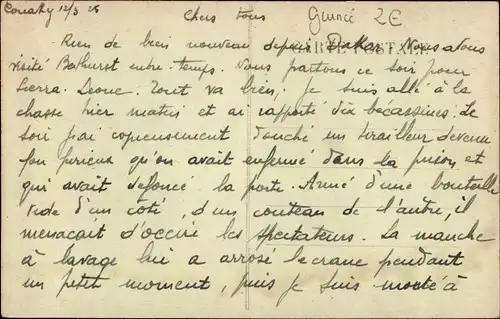 Conakry 12/3 28 Chers tous Guinée 2€
CARTE POSTALE
Rien de bien nouveau depuis Dakar. Nous avons
visité Bathurst entre-temps. Nous partons ce soir pour
Sierra-Leone. Tout va bien. Je suis allé à la
chasse hier matin et ai rapporté dix becassines. Le
soir j'ai copieusement douché un tirailleur devenu
fou furieux qu'on avait enfermé dans la prison et
qui avait defoncé la porte. Armé d'une bouteille
vide d'un côté, d'un couteau de l'autre, il
menaçait d'occire les spectateurs. La manche
à lavage lui a arrosé le crane pendant
un petit moment, puis je suis monté à